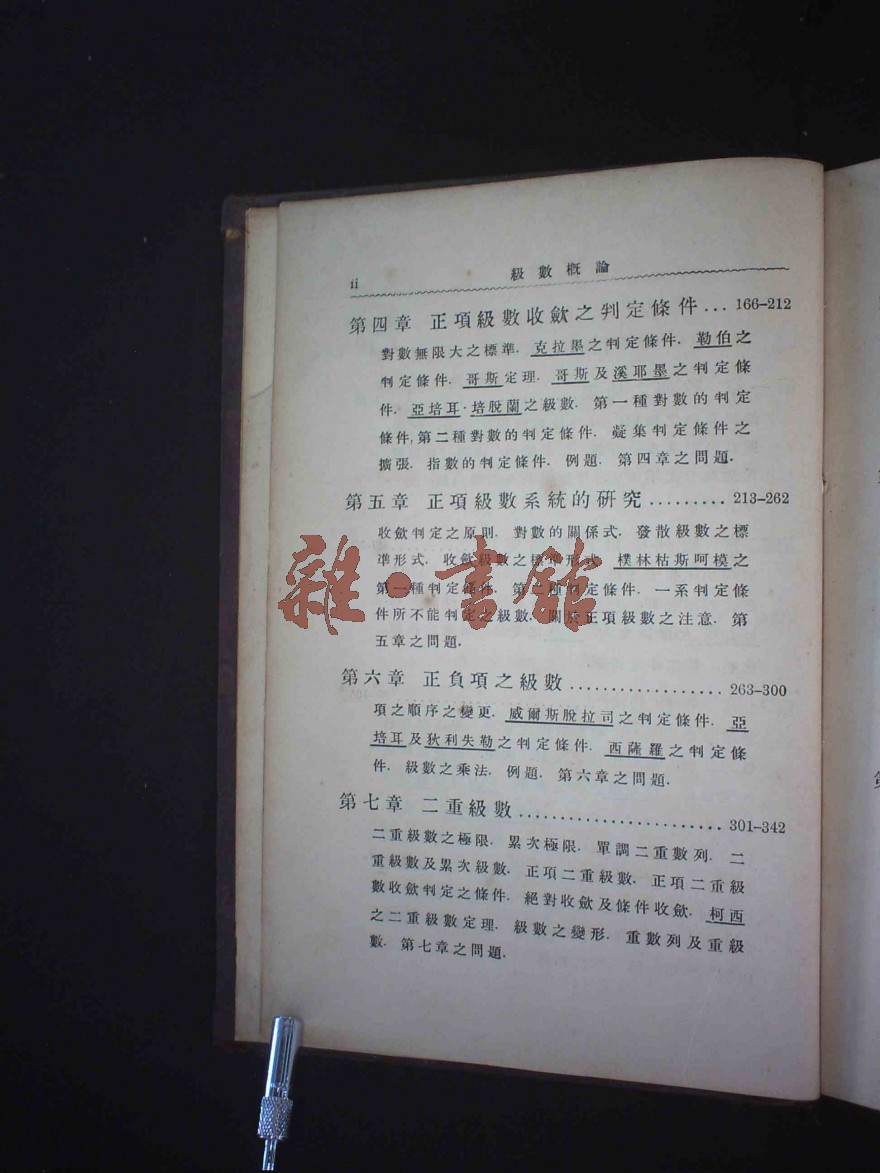 ii 級數概論
第四章 正項級數收歛之判定條件 ... 166-212
對數無限大之標準. 克拉墨之判定條件. 勒伯之
判定條件. 哥斯定理. 哥斯及溪耶墨之判定條
件. 亞培耳·培脫蘭之級數. 第一種對數的判定
條件, 第二種對數的判定條件. 凝集判定條件之
擴張. 指數的判定條件. 例題. 第四章之問題.
第五章 正項級數系統的研究 ......... 213-262
收歛判定之原則. 對數的關係式. 發散級數之標
準形式. 收歛級數之標準形式. 樸林枯斯呵模之
第一種判定條件. 第二種判定條件. 一系判定條
件所不能判定之級數. 關於正項級數之注意. 第
五章之問題.
第六章 正負項之級數 .................. 263-300
項之順序之變更. 威爾斯脫拉司之判定條件. 亞
培耳及狄利失勒之判定條件. 西薩羅之判定條
件. 級數之乘法. 例題. 第六章之問題.
第七章 二重級數 ........................ 301-342
二重級數之極限. 累次極限. 單調二重數列. 二
重級數及累次級數. 正項二重級數. 正項二重級
數收歛判定之條件. 絕對收歛及條件收歛. 柯西
之二重級數定理. 級數之變形. 重數列及重級
數. 第七章之問題.
雜·書館